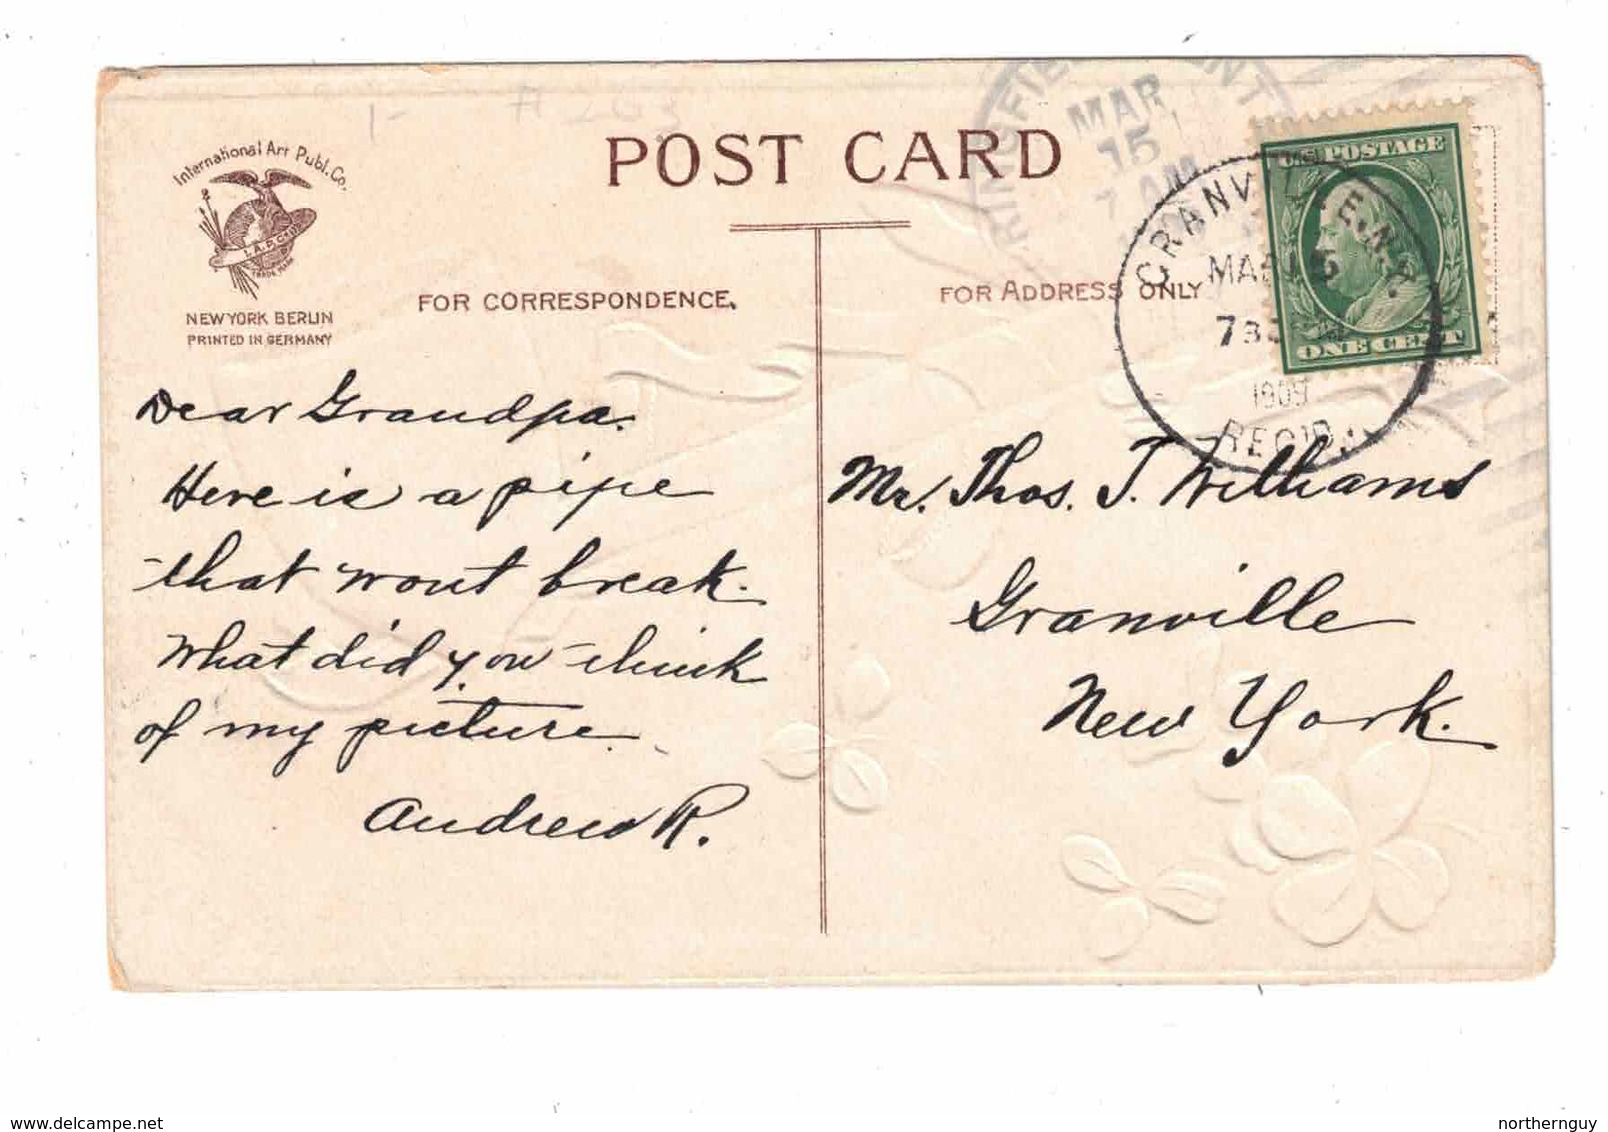 1- #203
International Art Publ. Co.
I.A.P.Co.
TRADE MARK
NEW YORK BERLIN
PRINTED IN GERMANY
POST CARD
FOR CORRESPONDENCE.
FOR ADDRESS ONLY
MAR
15
7 AM
U.S. POSTAGE
ONE CENT
MAR 15
1909
REC'D.
Dear Grandpa.
Here is a pipe
that wont break.
What did you think
of my picture.
Andrew R.
Mr. Thos. J. Williams
Granville
New York.
akpool.co.uk
northernguy